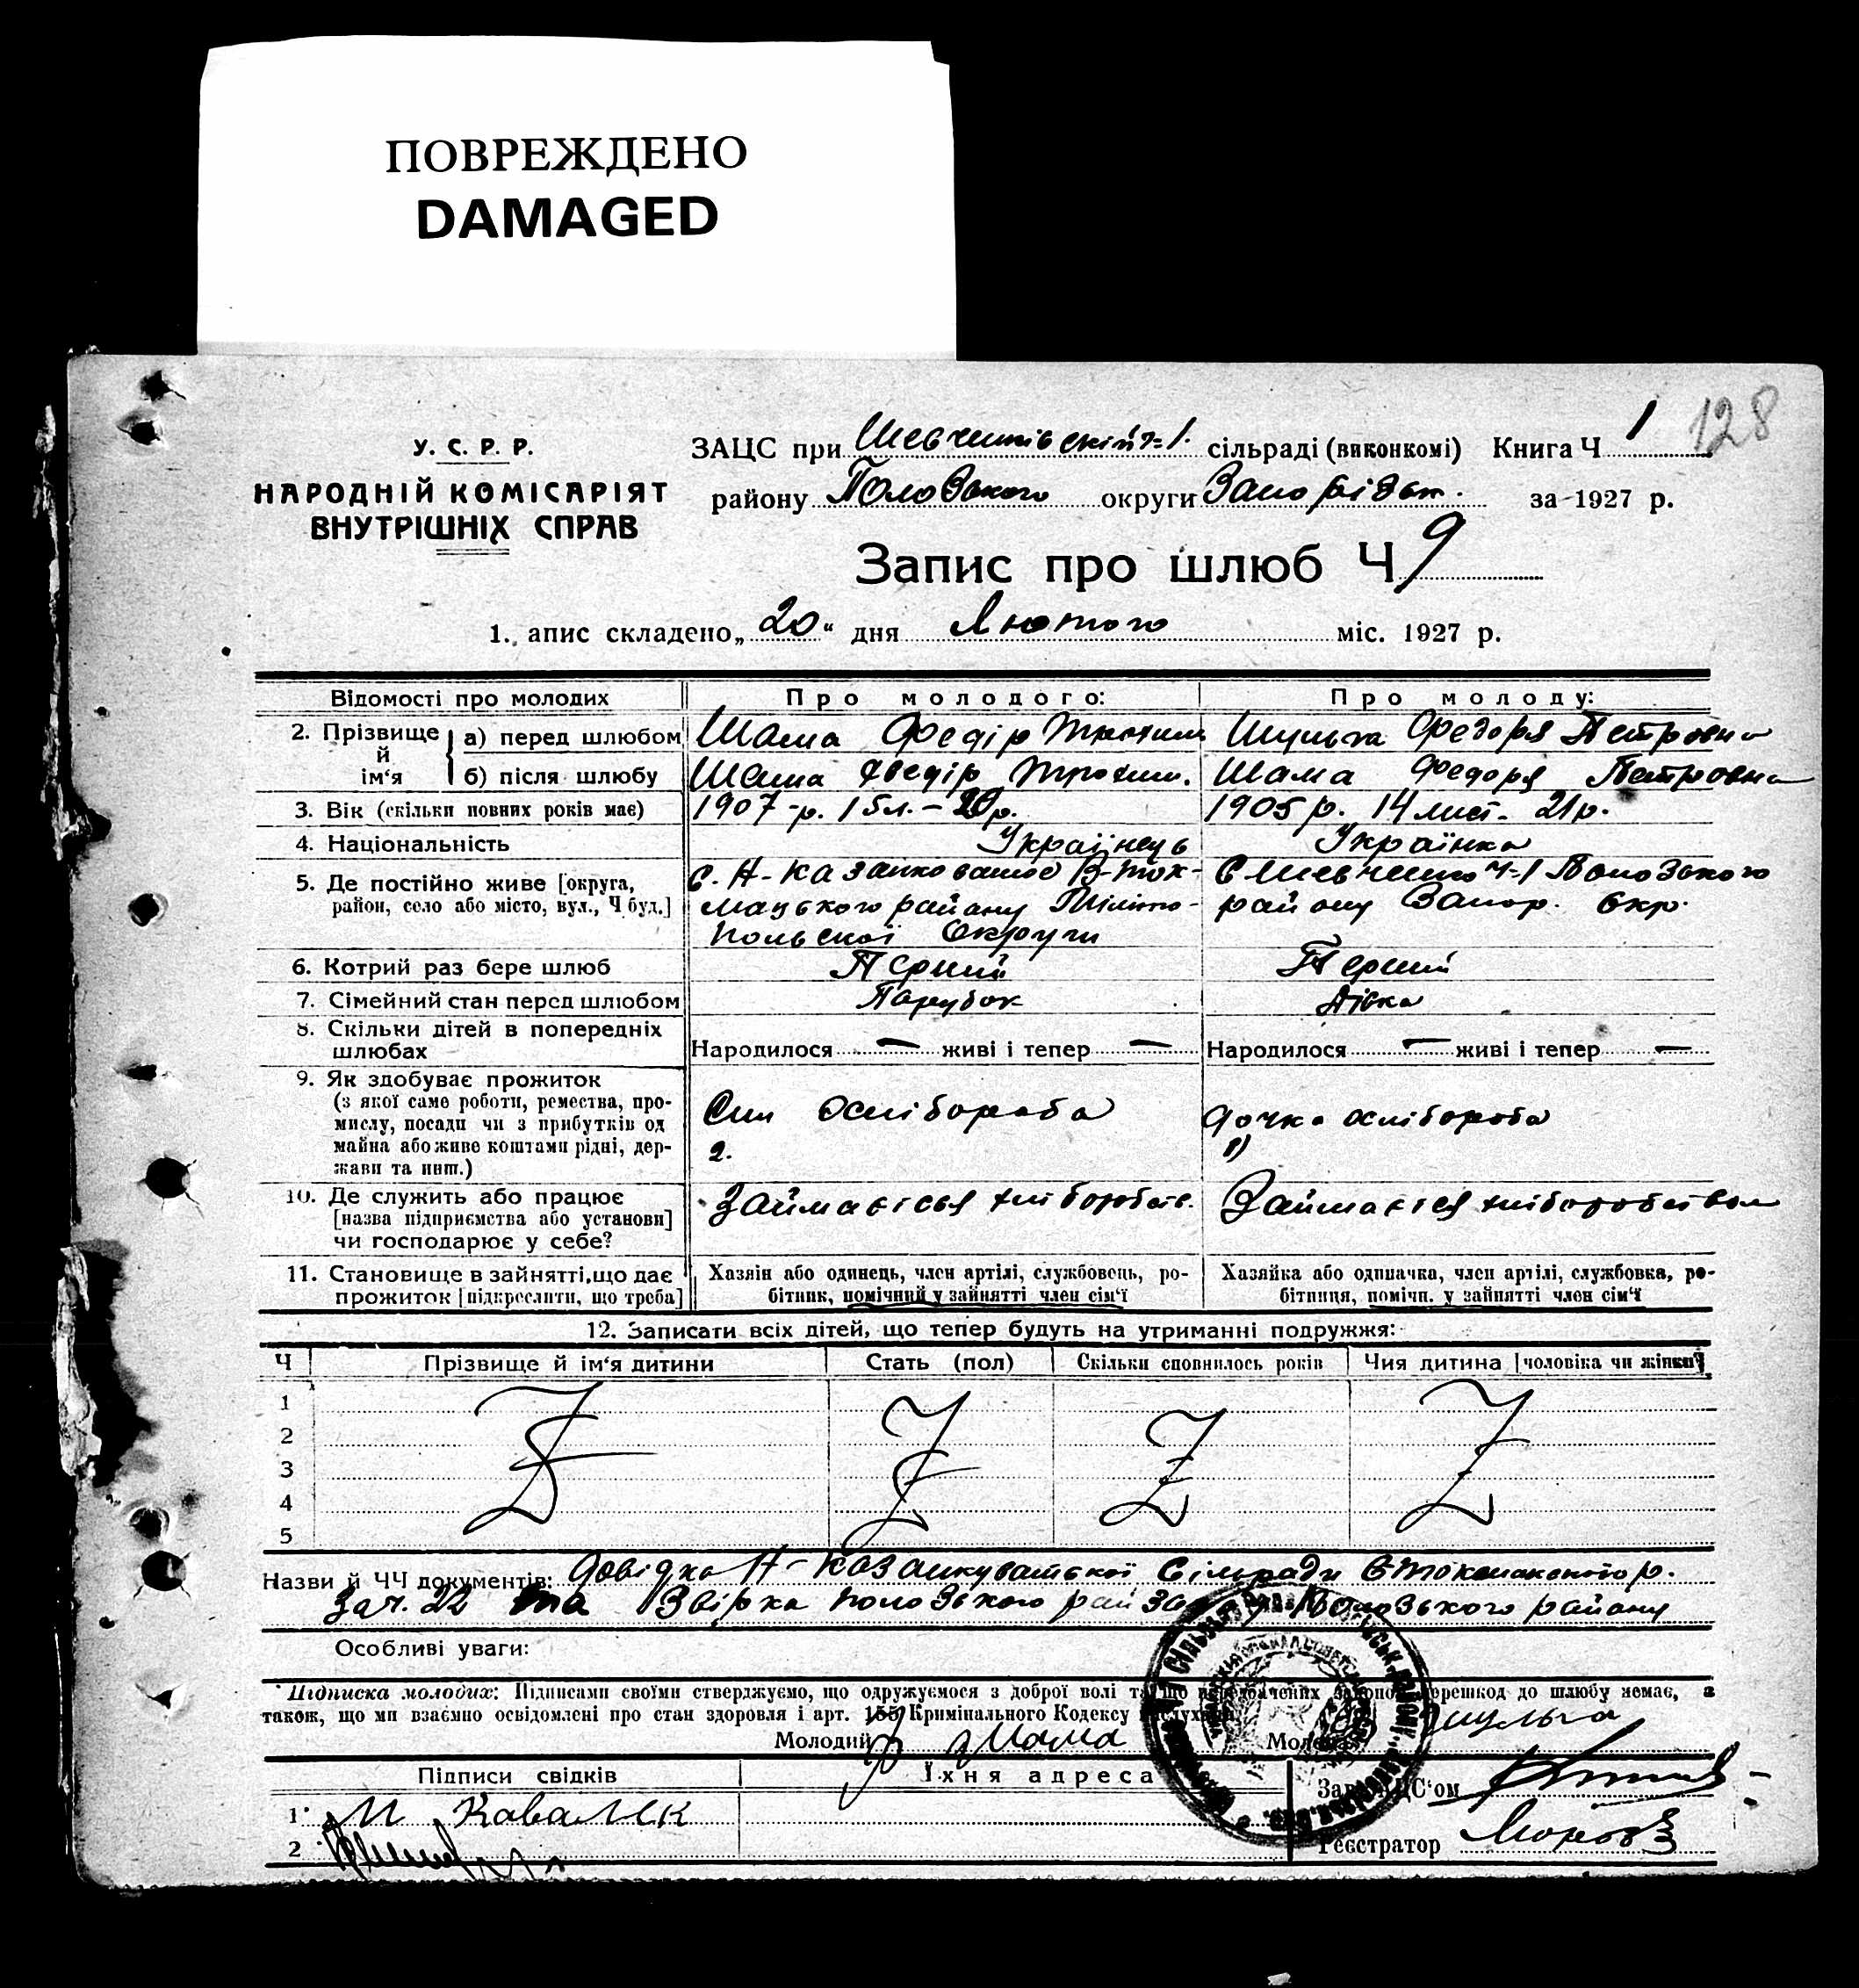 ПОВРЕЖДЕНО
DAMAGED
128
У. С. Р. Р.
НАРОДНІЙ КОМІСАРІЯТ
ВНУТРІШНІХ СПРАВ
ЗАЦС при Шевченківській ч-1. сільраді (виконкомі) Книга Ч 1
району Пологського округи Запоріж. за 1927 р.
Запис про шлюб Ч 9
1. апис складено „20“ дня Лютого міс. 1927 р.
Відомості про молодих Про молодого: Про молоду:
2. Прізвище й ім‘я
а) перед шлюбом Шама Федір Трохим Шульга Федора Петровна
б) після шлюбу Шама Федір Трохим. Шама Федора Петровна
3. Вік (скільки повних років має) 1907-р. 15л. – 20р. 1905 р. 14 лист. 21р.
4. Національність Українець Українка
5. Де постійно живе [округа, район, село або місто, вул., Ч буд.]
с. Н-Казанковатое В-Ток-
мацького району Меліто-
польської Округи
с Шевченко ч-1 Пологзького
району Запор. Окр.
6. Котрий раз бере шлюб Перший Перший
7. Сімейний стан перед шлюбом Парубок Дівка
8. Скільки дітей в попередніх шлюбах Народилося — живі і тепер — Народилося — живі і тепер —
9. Як здобуває прожиток
(з якої саме роботи, ремества, про-
мислу, посади чи з прибутків од
майна або живе коштами рідні, дер-
жави та инш.)
Син хлібороба
2.
Дочка хлібороба
1)
10. Де служить або працює
[назва підприємства або установи]
чи господарює у себе?
Займаєцся хліборобств. Займаєцся хліборобством
11. Становище в зайнятті, що дає
прожиток [підкреслити, що треба]
Хазяїн або одинець, член артілі, службовець, ро-
бітник, помічний у зайнятті член сім‘ї
Хазяйка або одиначка, член артілі, службовка, ро-
бітниця, помічн. у зайнятті член сім‘ї
12. Записати всіх дітей, що тепер будуть на утриманні подружжя:
Ч Прізвище й ім‘я дитини Стать (пол) Скільки сповнилось років Чия дитина [чоловіка чи жінки]
1
2
3
4
5
Назви й ЧЧ документів: Довідка Н-Казанкуватської Сільради В-Токмакского р.
За ч. 22 та Звірка Пологзького рай Пологзького району
Особливі уваги:
Підписка молодих: Підписами своїми стверджуємо, що одружуємося з доброї волі та що передбачених законом перешкод до шлюбу немає, а
також, що ми взаємно освідомлені про стан здоровля і арт. 155 Кримінального Кодексу
Молодий Шама Молода Шульга
Підписи свідків Їхня адреса Зав. ЗАЦС‘ом
1 М Ковалєк
2
Реєстратор